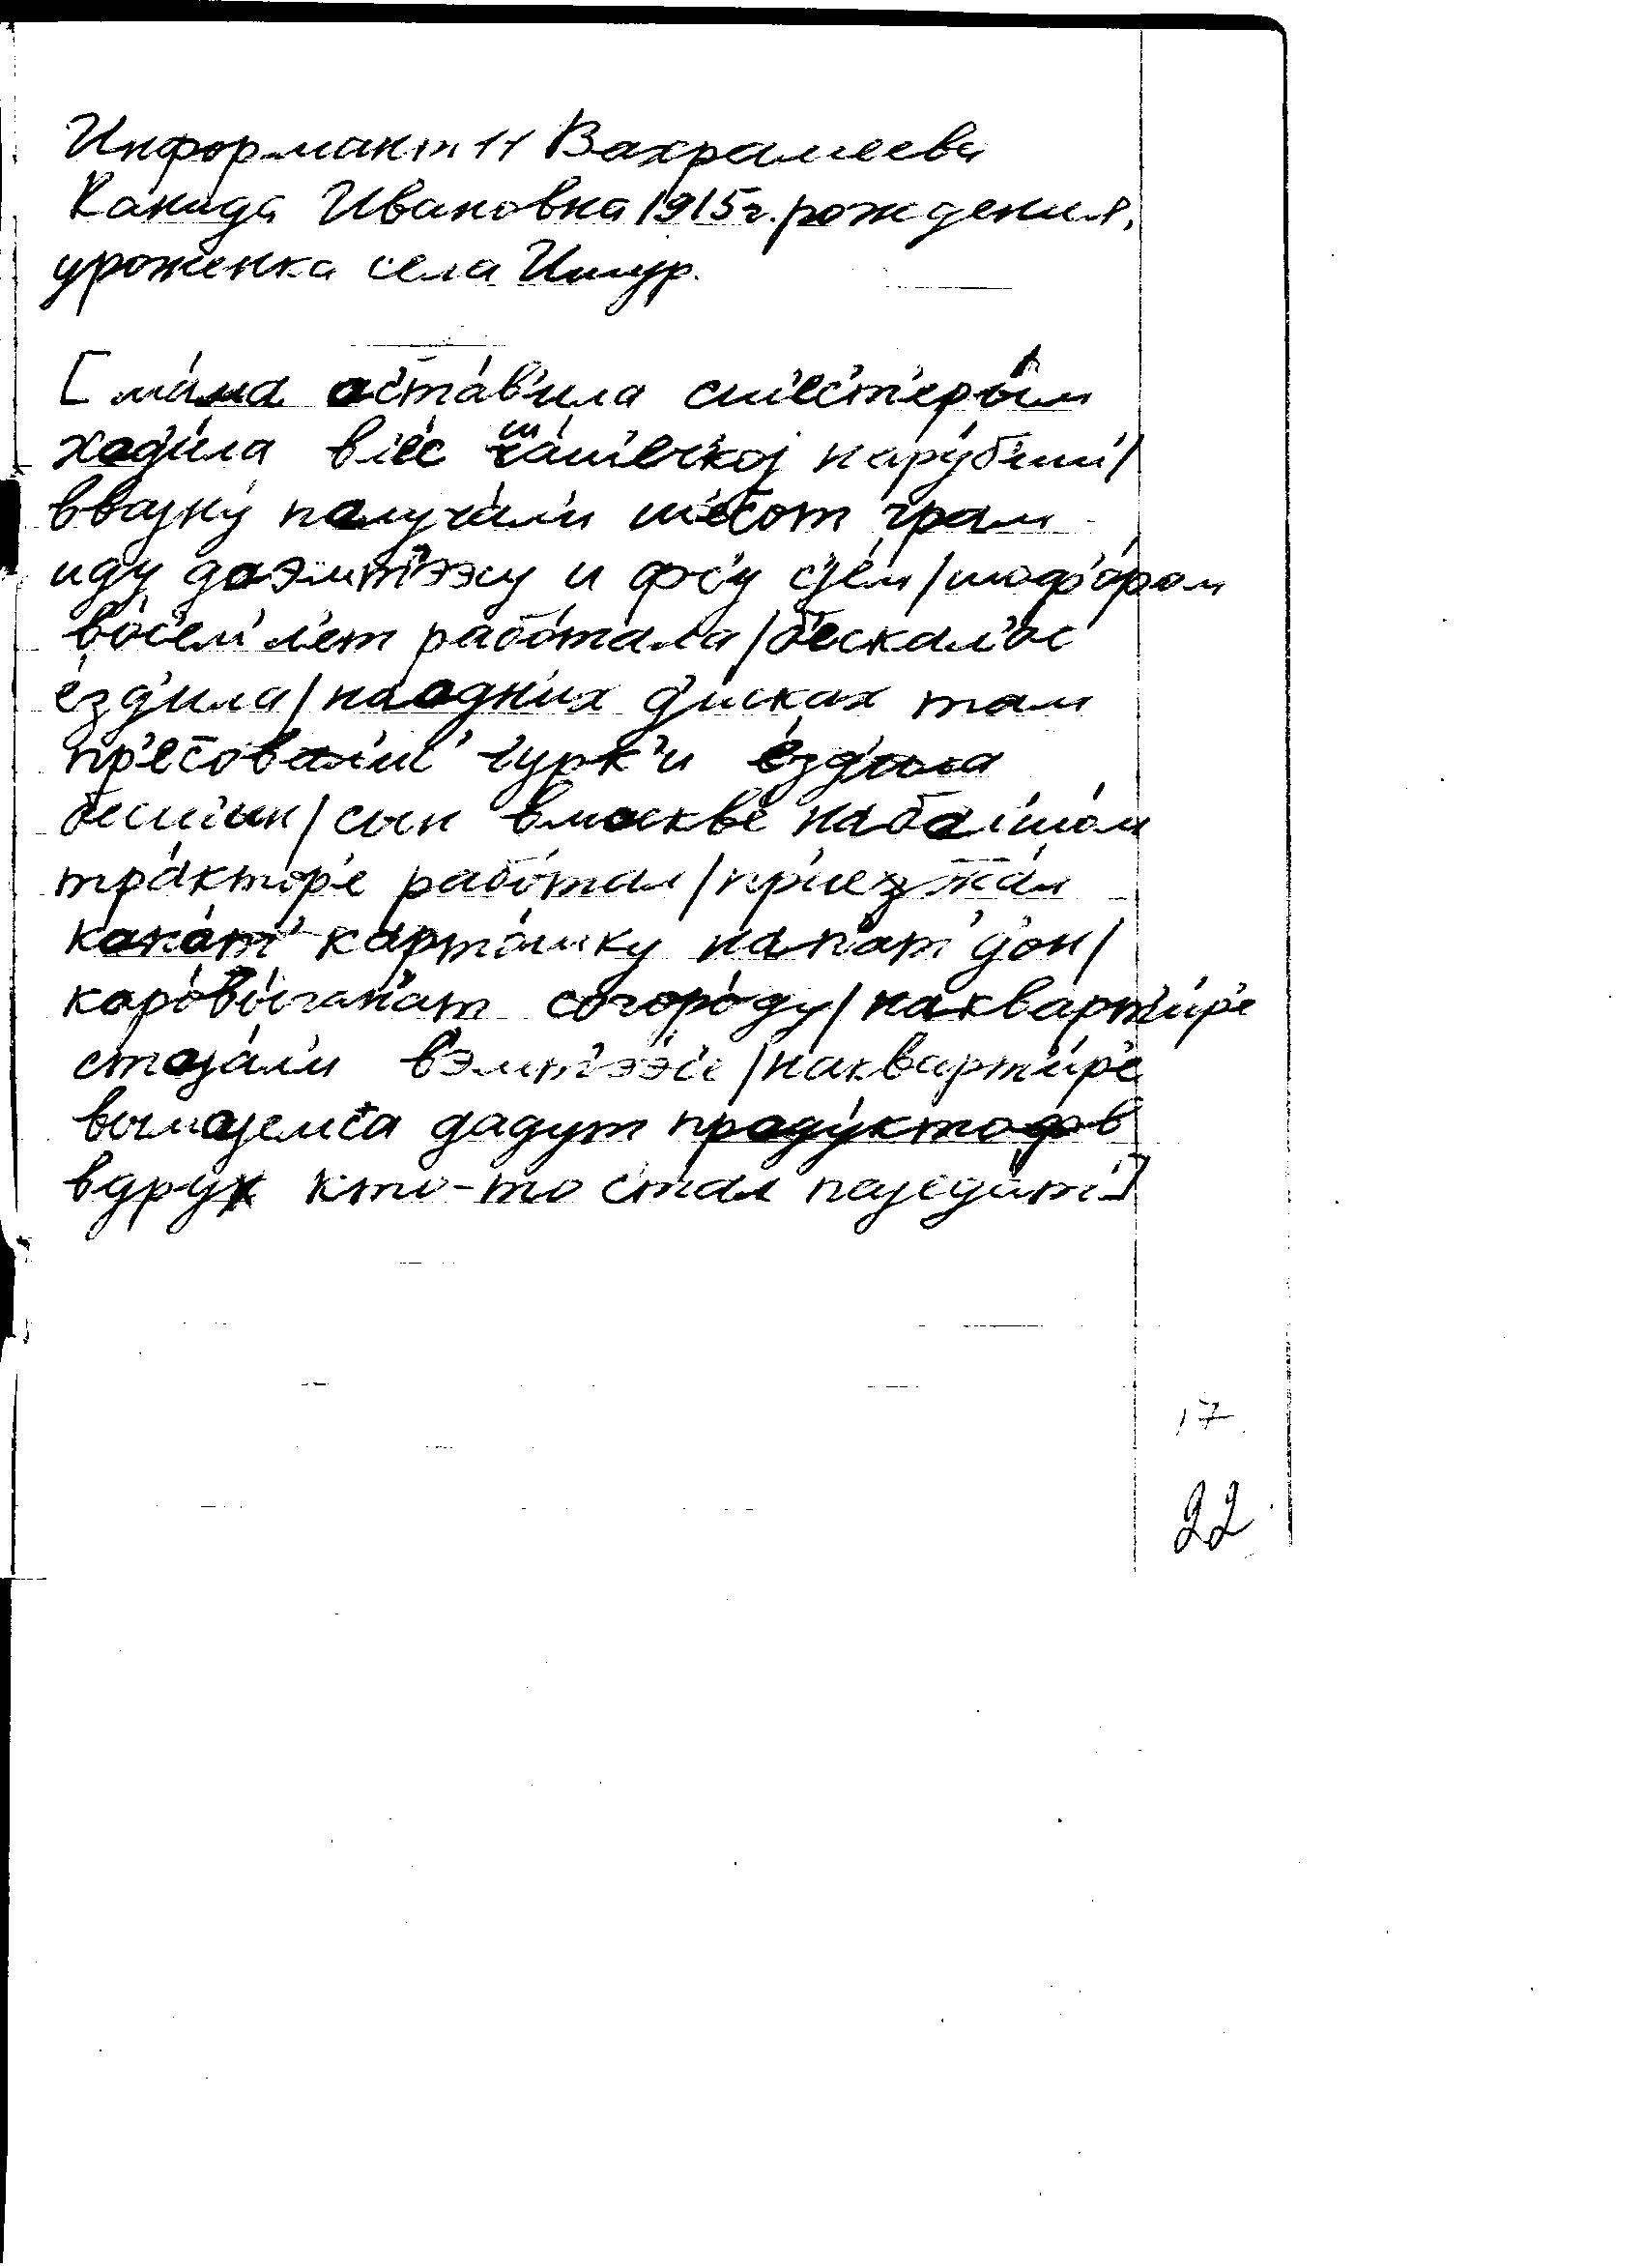 Информант 11 Вахрамеева
Канида Ивановна 1915 г. рождения,
уроженка села Ишур.
[ма́ма аста́в'ила сш'ест'еры́м
хад'и́ла вл'ес ча́щ'ечкој нару́б'им/
ввајну́ палуча́л'и ш'есот грам
иду даэмт'ээсу и фс'у с'jем/шаф'о́рам
во́с'ем' л'ет рабо́тала/б'ескал'о́с
е́зд'ила/наодн'и́х д'и́сках там
пр'есовал'и ч'урк'и е́зд'ила
б'ешын/сын вмаскв'е́ набал'шо́м
тра́ктор'е рабо́тал/пр'иезжа́л
капа́т' карто́шку нап'ат' д'он/
каро́вы́ган'ат согоро́ду/наквартир'е
стаја́л'и вэмт'ээс'е/накварт'и́р'е
вымајемса дадут продуктодов
вдрух кто-то стал паједат']
17
22